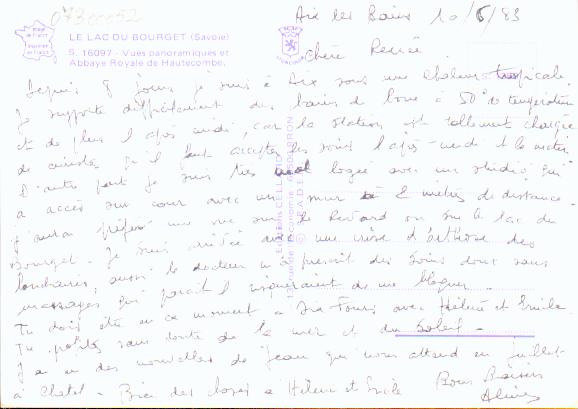 07300052
Aix les Bains 10/6/83
LE LAC DU BOURGET (Savoie)
S. 16097 - Vues panoramiques et
Abbaye Royale de Hautecombe.
Chère Renée
Depuis 8 jours je suis à Aix sous une chaleur tropicale.
Je supporte difficilement des bains de boue à 50° de température
et de plus l'après midi, car la station est tellement chargée
de curistes qu'il faut accepter les soins l'après-midi et le matin
D'autre part je suis très mal logée avec un studio qui
a accès sur cour avec un mur à 2 mètres de distance -
J'aurai préféré une vue sur le Revard ou sur le lac du
Bourget - Je suis arrivée avec une crise d'arthrose des
lombaires, aussi le docteur m'a prescrit des soins doux sans
massages qui paraît il risqueraient de me bloquer -
Tu dois être en ce moment à Six Fours avec Hélène et Emile
Tu profites sans doute de la mer et du Soleil -
J'ai eu des nouvelles de Jean qui nous attend en juillet
à Chatel - Bien des choses à Hélène et Emile
Bons Baisers